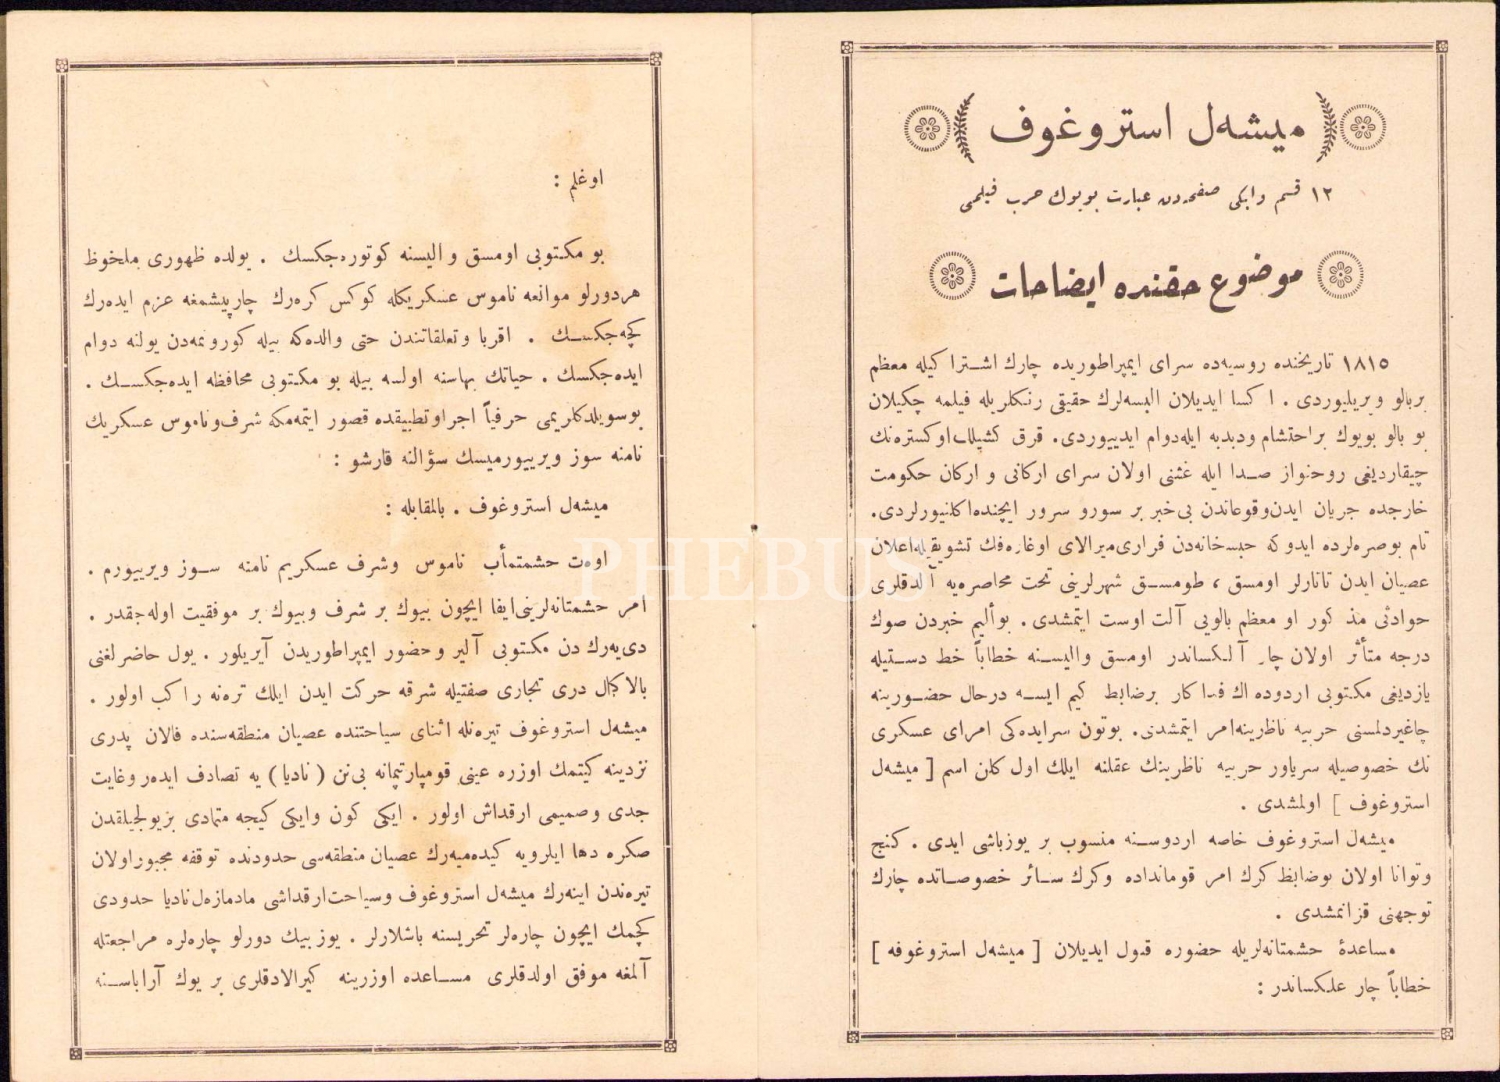 ميشه‌ل استروغوف
١٢ قسم وايكى صفحه‌دن عبارت بويوك حرب فيلمى
موضوع حقنده ايضاحات
١٨١٥ تاريخنده روسيه‌ده سراى ايمپراطوريده چارك اشتراكيله معظم
بربالو ويريليوردى . اكسا ايديلان البسه‌لرك حقيقى رنكلريله فيلمه چكيلان
بو بالو بويوك براحتشام ودبدبه ايله‌دوام ايدييوردى. قرق كشيلك‌اوكستره‌نك
چيقارديغى روحنواز صدا ايله غشى اولان سراى اركانى و اركان حكومت
خارجده جريان ايدن‌وقوعاتدن بى‌خبر بر سورو سرور ايچنده‌اكلنيورلردى.
تام بوصره‌لرده ايدوكه حبسخانه‌دن فرارى‌ميرالاى اوغاره‌فك تشويقيله‌اعلان
عصيان ايدن تاتارلر اومسق ، طومسق شهرلرينى تحت محاصره‌يه آلدقلرى
حوادثى مذكور او معظم بالويى آلت اوست ايتمشدى. بوأليم خبردن صوك
درجه متأثر اولان چار آلكساندر اومسق واليسنه خطاباً خط دستيله
يازديغى مكتوبى اردوده اك فداكار برضابط كيم ايسه درحال حضورينه
چاغيردلمسنى حربيه ناظرينه‌امر ايتمشدى. بوتون سرايده‌كى امراى عسكرى
نك خصوصيله سرياور حربيه ناظرينك عقلنه ايلك اول كلن اسم [ ميشه‌ل
استروغوف ] اولمشدى .
ميشه‌ل استروغوف خاصه اردوسنه منسوب بر يوزباشى ايدى . كنج
وتوانا اولان بوضابط كرك امر قومانداده وكرك سائر خصوصاتده چارك
توجهنى قزانمشدى .
مساعدۀ حشمتانه‌لريله حضوره قبول ايديلان [ ميشه‌ل استروغوفه ]
خطاباً چار علكساندر :
اوغلم :
بو مكتوبى اومسق واليسنه كوتوره‌جكسك . يولده ظهورى ملحوظ
هردورلو موانعه ناموس عسكريكله كوكس كره‌رك چارپيشمغه عزم ايده‌رك
كچه‌جكسك . اقربا وتعلقاتندن حتى والده‌كه بيله كورونمه‌دن يولنه دوام
ايده‌جكسك . حياتك بهاسنه اولسه بيله بو مكتوبى محافظه ايده‌جكسك .
بوسويلدكلريمى حرفياً اجراوتطبيقده قصور ايتمه‌مكه شرف‌وناموس عسكريك
نامنه سوز ويرييورميسك سؤالنه قارشو :
ميشه‌ل استروغوف . بالمقابله :
اوت حشمتمأب ناموس وشرف عسكريم نامنه سوز ويرييورم .
امر حشمتانه‌لرينى‌ايفا ايچون بيوك بر شرف وبيوك بر موفقيت اوله‌جقدر .
دى‌يه‌رك دن مكتوبى آلير وحضور ايمپراطوريدن آيريلور . يول حاضرلغنى
بالاكمال درى تجارى صفتيله شرقه حركت ايدن ايلك ترنه راكب اولور .
ميشه‌ل استروغوف تيره‌نله اثناى سياحتنده عصيان منطقه‌سنده قالان پدرى
نزدينه كيتمك اوزره عينى قومپارتيمانه بى‌نن ( ناديا ) يه تصادف ايده‌ر وغايت
جدى وصميمى ارقداش اولور . ايكى كون وايكى كيجه متمادى بريولجيلقدن
صكره دها ايلرويه كيده‌ميه‌رك عصيان منطقه‌سى حدودنده توقفه مجبوراولان
تيره‌ندن اينه‌رك ميشه‌ل استروغوف وسياحت‌ارقداشى مادمازه‌ل‌ناديا حدودى
كچمك ايچون چاره‌لر تحريسنه باشلارلر . يوزبيك دورلو چاره‌لره مراجعتله
آلمغه موفق اولدقلرى مساعده اوزرينه كيرالادقلرى بر يوك آراباسنه